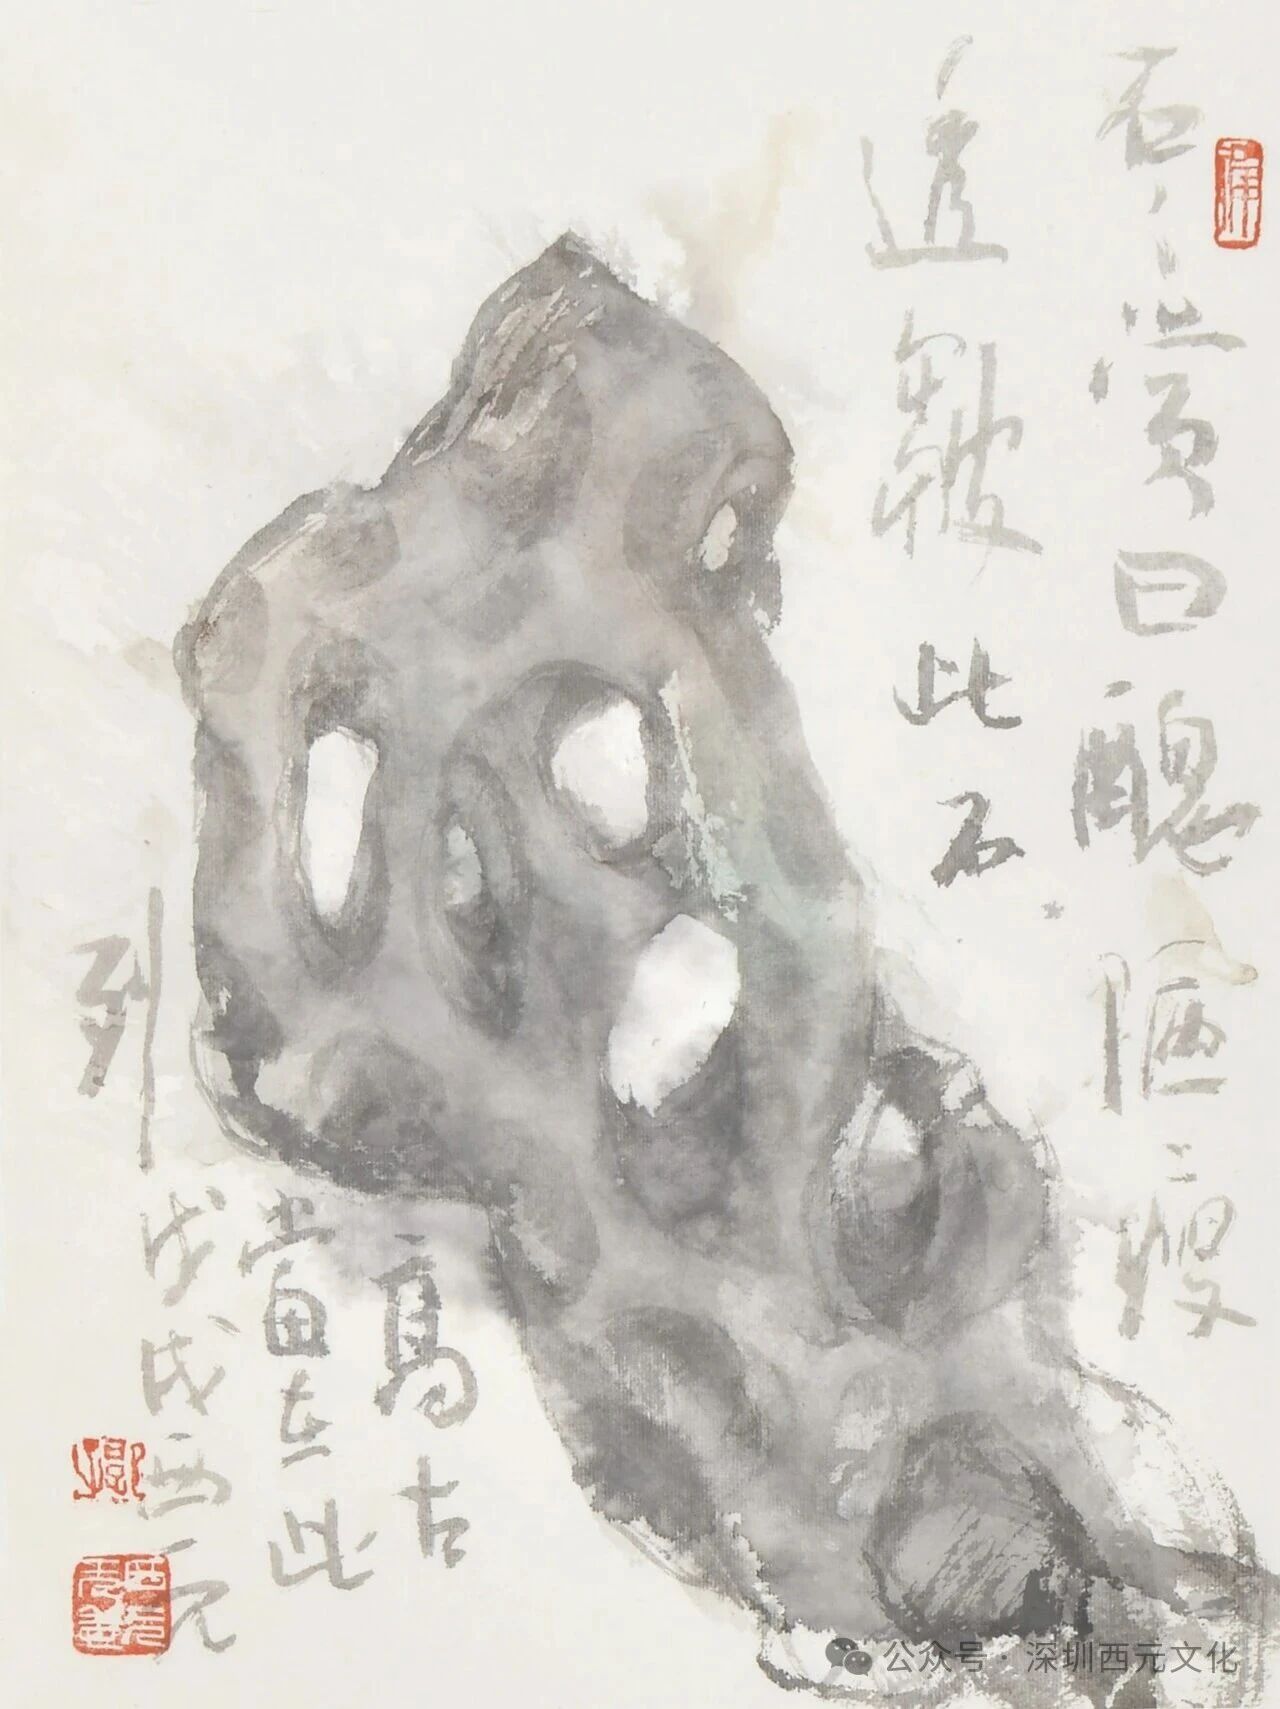 石賞曰醜陋瘦
透皺此石
高古
當在此
列
戊戌西元
公众号 · 深圳西元文化